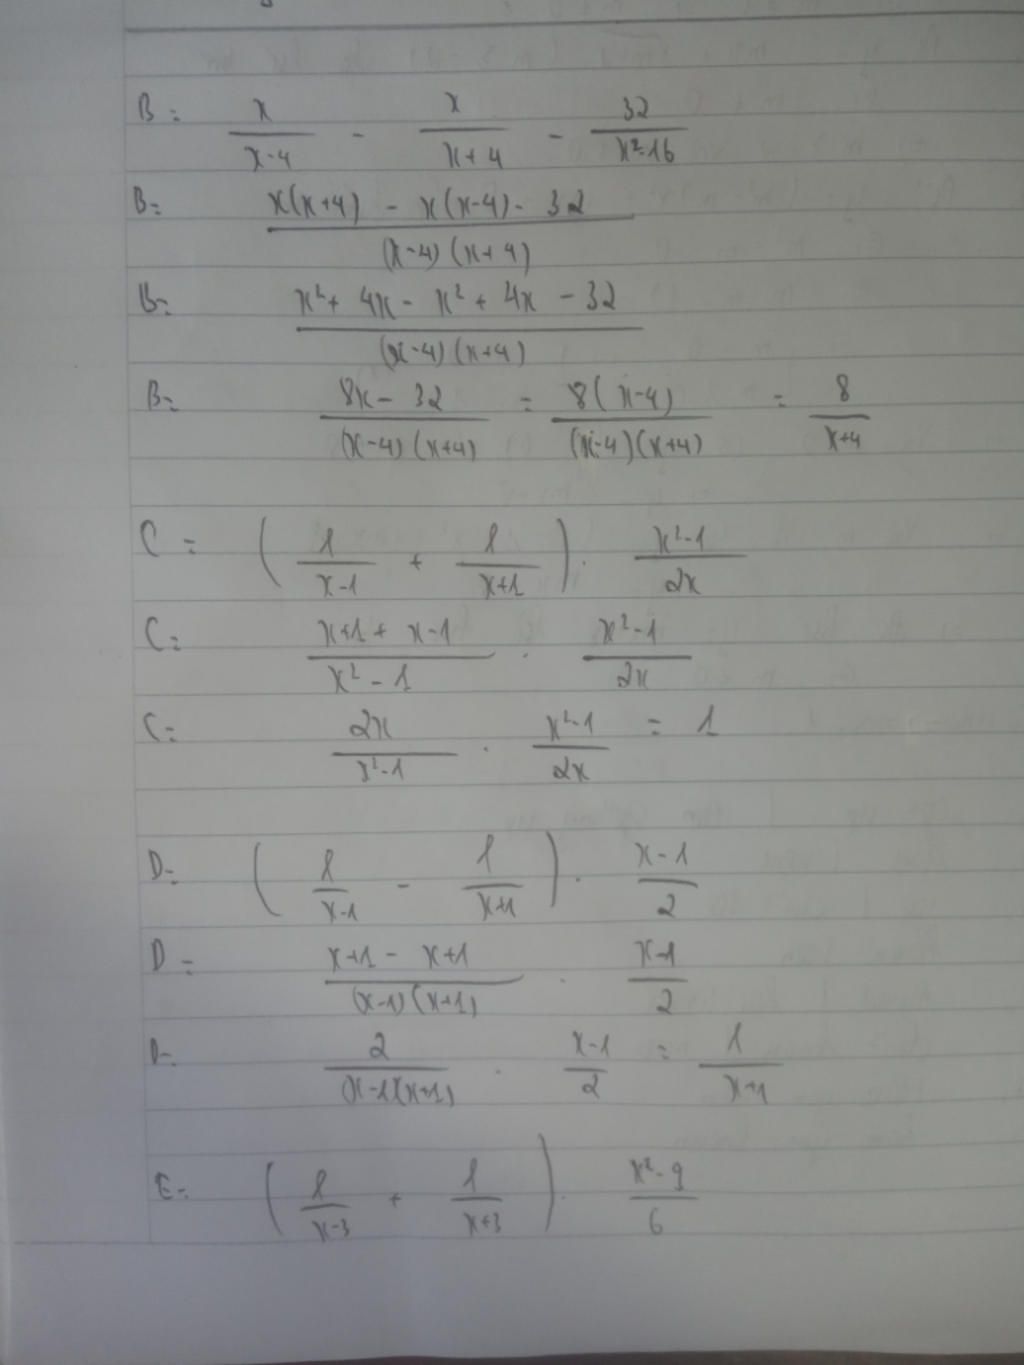 B = x/(x-4) - x/(x+4) - 32/(x²-16)
B = (x(x+4) - x(x-4) - 32)/((x-4)(x+4))
B = (x² + 4x - x² + 4x - 32)/((x-4)(x+4))
B = (8x - 32)/((x-4)(x+4)) = 8(x-4)/((x-4)(x+4)) = 8/(x+4)
C = (1/(x-1) + 1/(x+1)) . (x²-1)/2x
C = (x+1 + x-1)/(x² - 1) . (x²-1)/2x
C = 2x/(x²-1) . (x²-1)/2x = 1
D = (1/(x-1) - 1/(x+1)) . (x-1)/2
D = (x+1 - x+1)/((x-1)(x+1)) . (x-1)/2
D = 2/((x-1)(x+1)) . (x-1)/2 = 1/(x+1)
E = (1/(x-3) + 1/(x+3)) . (x²-9)/6